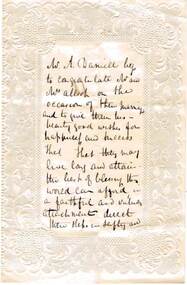 Mr A. Daniell beg
to congratulate Mr and
Mrs on the
occasion of their marriage
and to give them his
hearty good wishes for
happiness and success
that they may
live long and attain
the best of blessing the
world can afford in
a faithful and
attachment direct
their steps in safety and